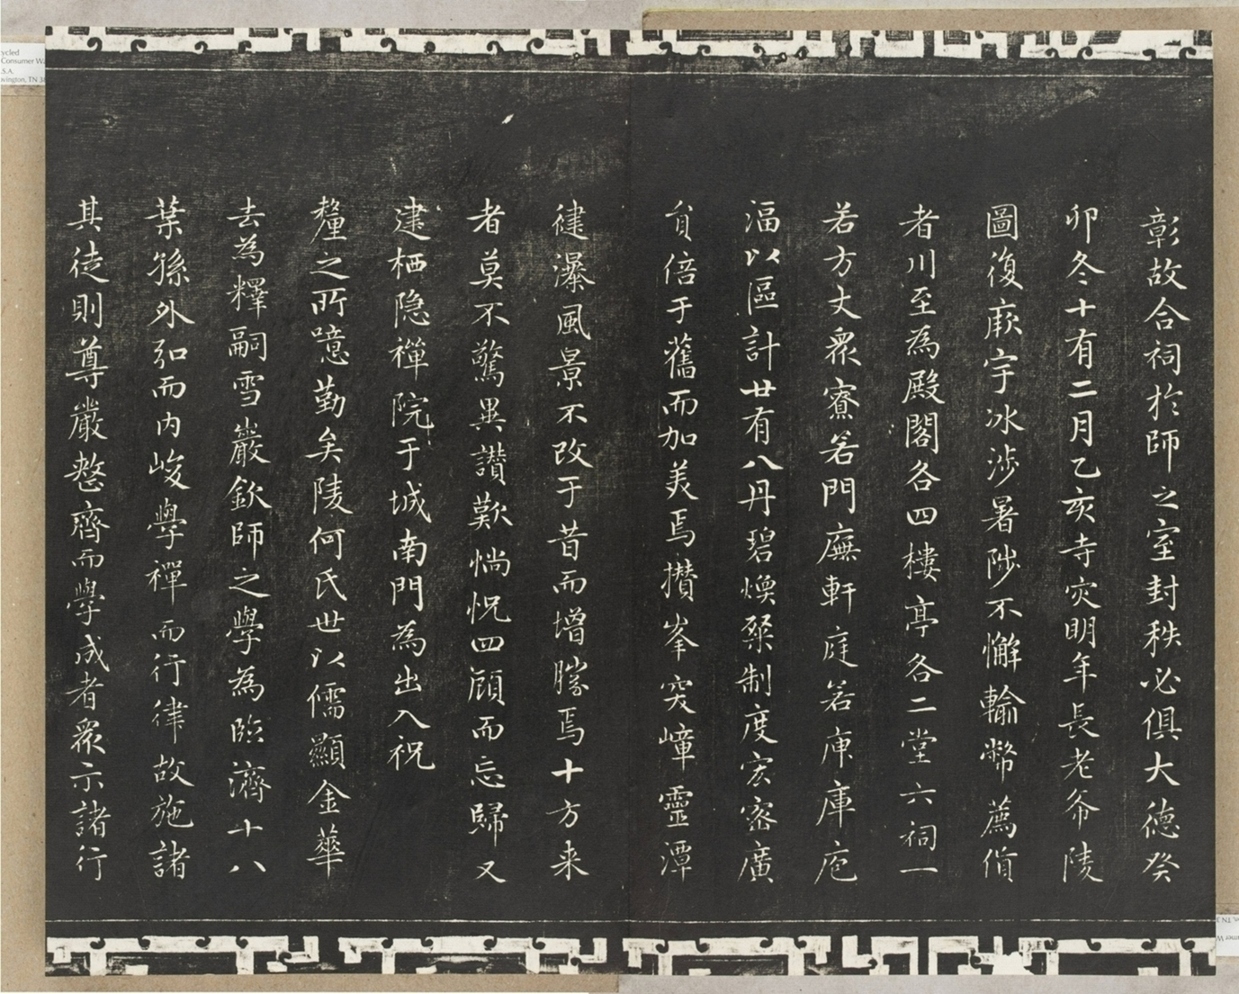 彰故合祠於師之室封秩必俱大德癸
卯冬十有二月乙亥寺灾明年長老希陵
圖復厥宇冰涉暑陟不懈輸幣薦貨
者川至為殿閣各四樓亭各二堂六祠一
若方丈衆寮若門廡軒庭若庾庫庖
湢以區計廿有八丹碧煥粲制度宏密廣
員倍于舊而加美焉攅峯突嶂靈潭
健瀑風景不改于昔而增勝焉十方来
者莫不驚異讃歎惝怳四顧而忘歸又
建栖隐禪院于城南門為出入祝
釐之所噫勤矣陵何氏世以儒顯金華
去為釋嗣雪巖欽師之學為臨濟十八
葉孫外弘而内峻學禪而行律故施諸
其徒則尊嚴整齊而學成者衆示諸行
ycled
Consumer Wa
.S.A.
vington, TN 38